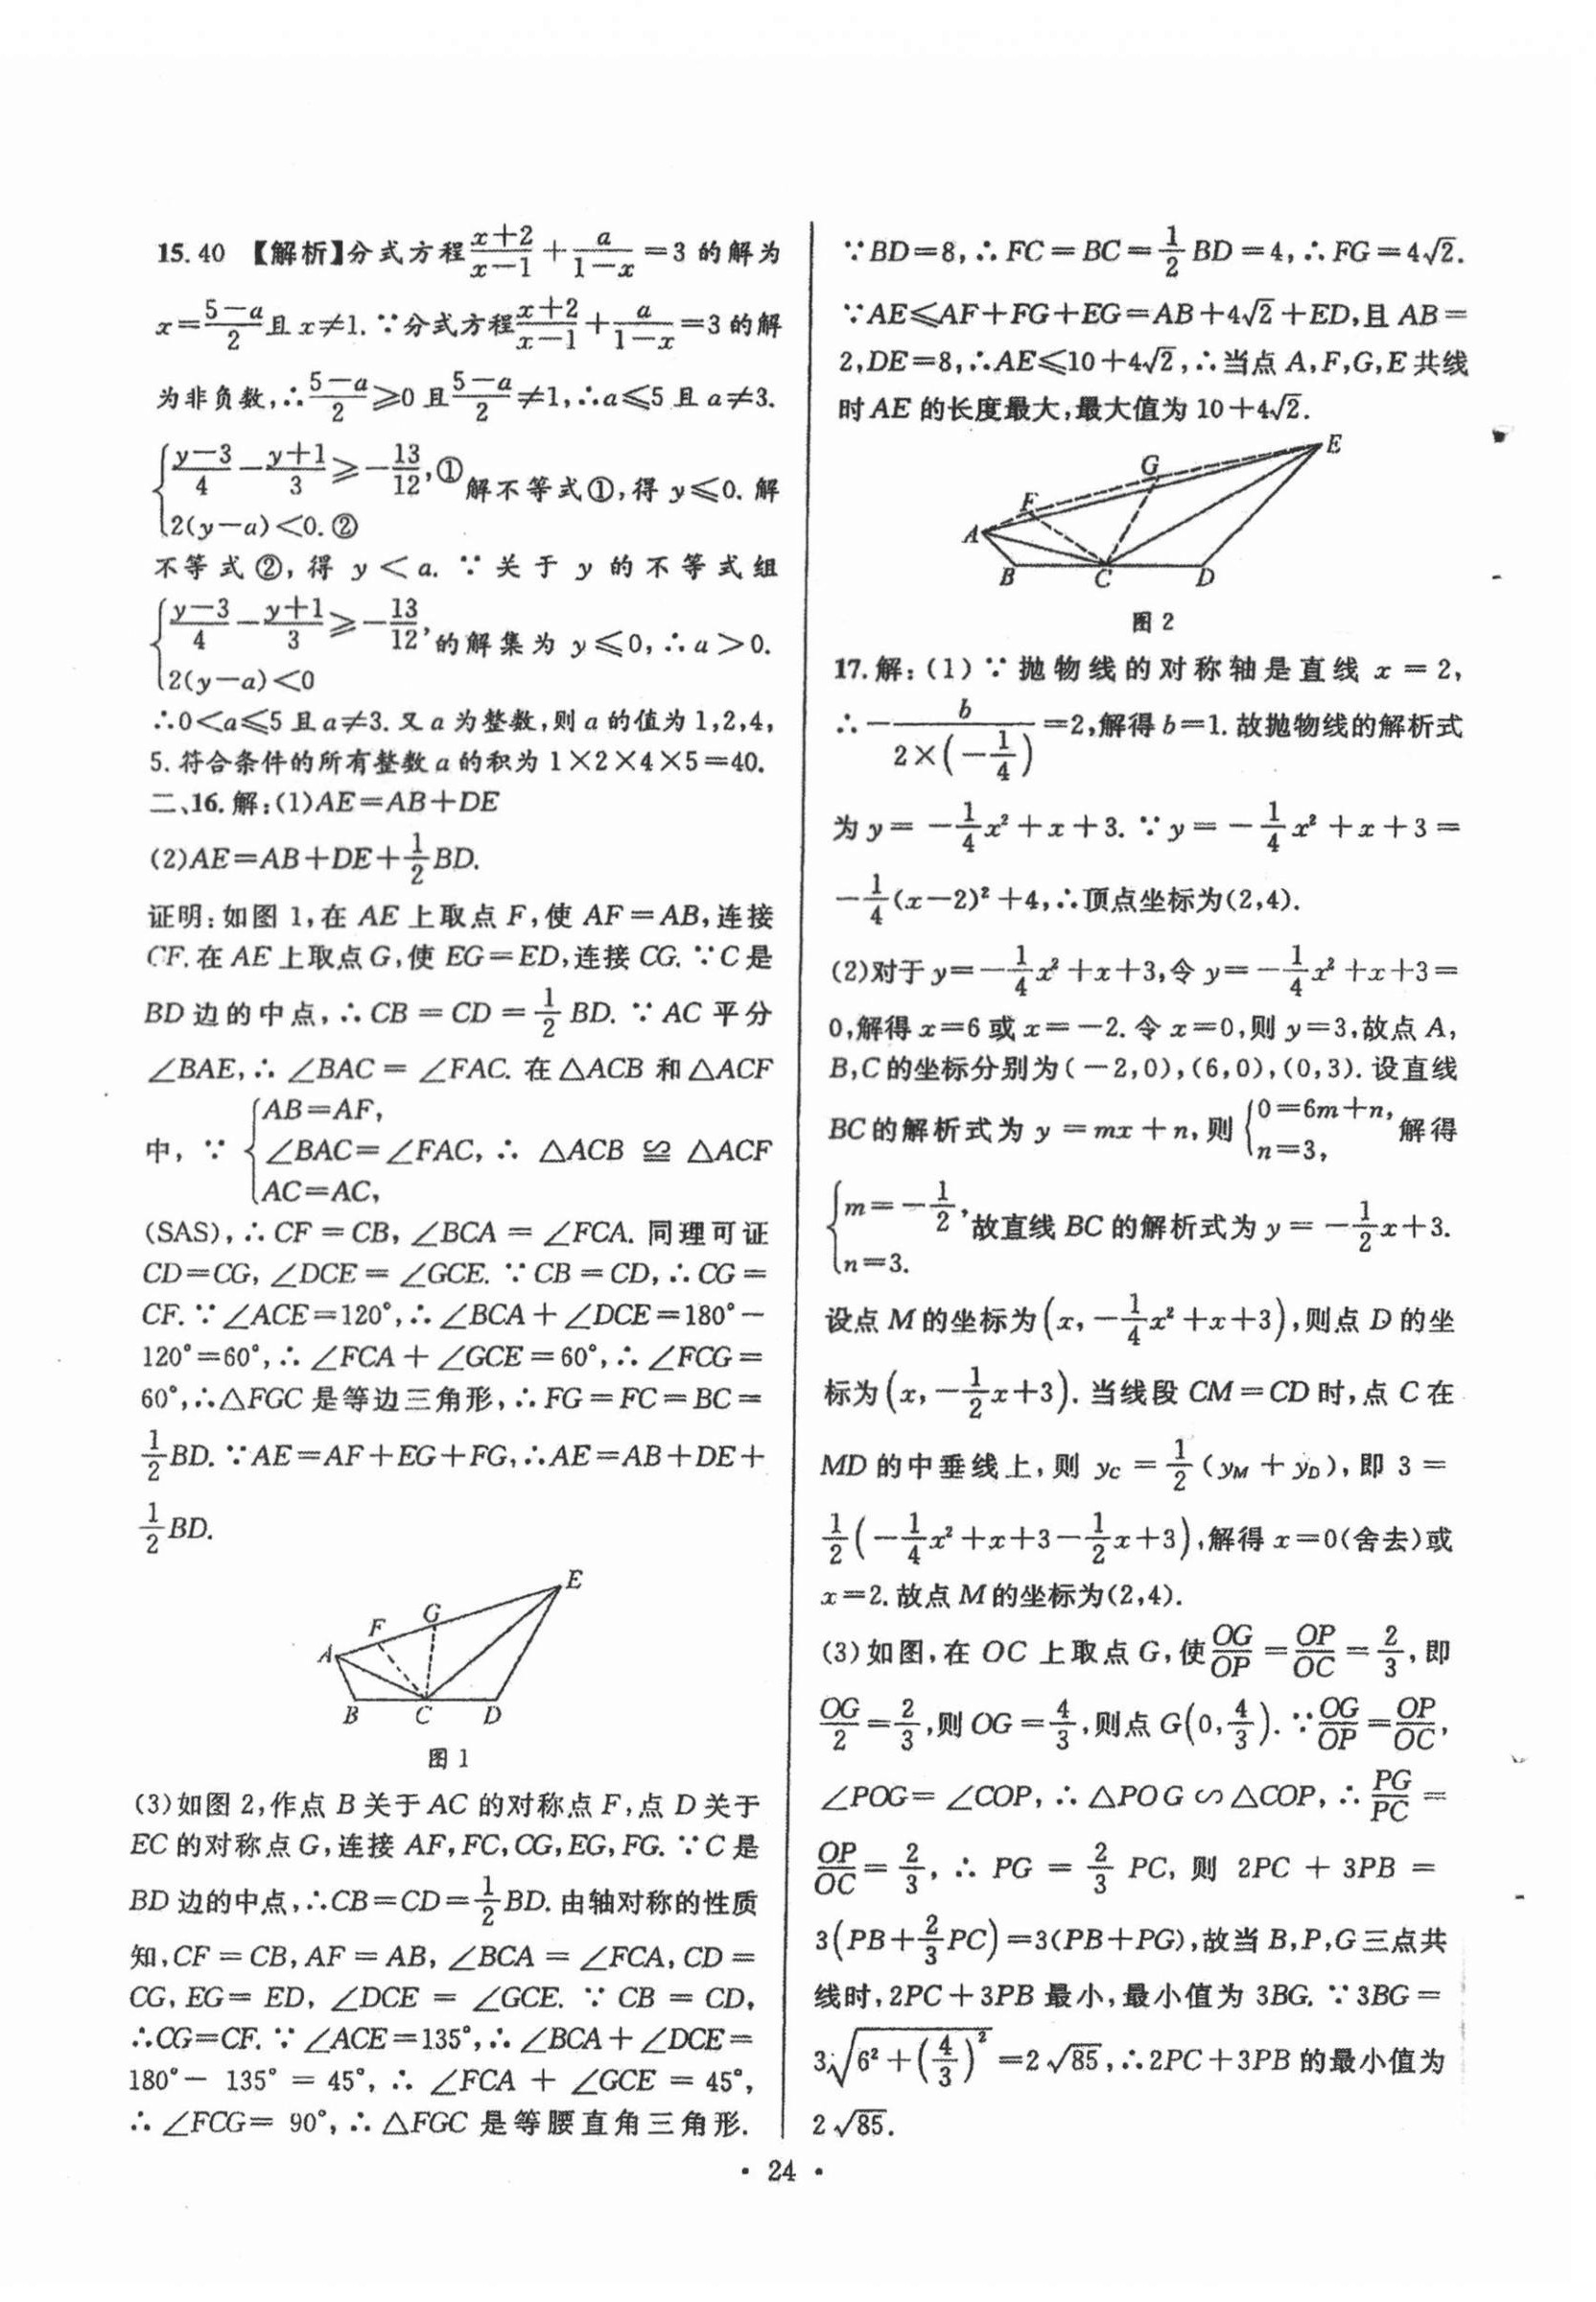 15.40 【解析】分式方程\frac{x+2}{x-1}+\frac{a}{1-x}=3的解为
x=\frac{5-a}{2}且x≠1.∵分式方程\frac{x+2}{x-1}+\frac{a}{1-x}=3的解
为非负数,∴\frac{5-a}{2}≥0且\frac{5-a}{2}≠1,∴a≤5且a≠3.
\begin{cases}\frac{y-3}{4}-\frac{y+1}{3}≥-\frac{13}{12},①\\2(y-a)<0.②\end{cases}解不等式①,得y≤0.解
不等式②,得y<a.∵关于y的不等式组
\begin{cases}\frac{y-3}{4}-\frac{y+1}{3}≥-\frac{13}{12},\\2(y-a)<0\end{cases}的解集为y≤0,∴a>0.
∴0<a≤5且a≠3.又a为整数,则a的值为1,2,4,
5.符合条件的所有整数a的积为1×2×4×5=40.
二、16.解:(1)AE=AB+DE
(2)AE=AB+DE+\frac{1}{2}BD.
证明:如图1,在AE上取点F,使AF=AB,连接
CF.在AE上取点G,使EG=ED,连接CG.∵C是
BD边的中点,∴CB=CD=\frac{1}{2}BD.∵AC平分
∠BAE,∴∠BAC=∠FAC.在△ACB和△ACF
中,∵\begin{cases}AB=AF,\\∠BAC=∠FAC,\\AC=AC,\end{cases}∴△ACB≌△ACF
(SAS),∴CF=CB,∠BCA=∠FCA.同理可证
CD=CG,∠DCE=∠GCE.∵CB=CD,∴CG=
CF.∵∠ACE=120°,∴∠BCA+∠DCE=180°-
120°=60°,∴∠FCA+∠GCE=60°,∴∠FCG=
60°,∴△FGC是等边三角形,∴FG=FC=BC=
\frac{1}{2}BD.∵AE=AF+EG+FG,∴AE=AB+DE+
\frac{1}{2}BD.
E
G
F
A
B C D
图1
(3)如图2,作点B关于AC的对称点F,点D关于
EC的对称点G,连接AF,FC,CG,EG,FG.∵C是
BD边的中点,∴CB=CD=\frac{1}{2}BD.由轴对称的性质
知,CF=CB,AF=AB,∠BCA=∠FCA,CD=
CG,EG=ED,∠DCE=∠GCE.∵CB=CD,
∴CG=CF.∵∠ACE=135°,∴∠BCA+∠DCE=
180°-135°=45°,∴∠FCA+∠GCE=45°,
∴∠FCG=90°,∴△FGC是等腰直角三角形.
∵BD=8,∴FC=BC=\frac{1}{2}BD=4,∴FG=4√2.
∵AE≤AF+FG+EG=AB+4√2+ED,且AB=
2,DE=8,∴AE≤10+4√2,∴当点A,F,G,E共线
时AE的长度最大,最大值为10+4√2.
E
G
F
A
B C D
图2
17.解:(1)∵抛物线的对称轴是直线x=2,
∴-\frac{b}{2×(-\frac{1}{4})}=2,解得b=1.故抛物线的解析式
为y=-\frac{1}{4}x²+x+3.∵y=-\frac{1}{4}x²+x+3=
-\frac{1}{4}(x-2)²+4,∴顶点坐标为(2,4).
(2)对于y=-\frac{1}{4}x²+x+3,令y=-\frac{1}{4}x²+x+3=
0,解得x=6或x=-2.令x=0,则y=3,故点A,
B,C的坐标分别为(-2,0),(6,0),(0,3).设直线
BC的解析式为y=mx+n,则\begin{cases}0=6m+n,\\n=3,\end{cases}解得
\begin{cases}m=-\frac{1}{2},\\n=3.\end{cases}故直线BC的解析式为y=-\frac{1}{2}x+3.
设点M的坐标为(x,-\frac{1}{4}x²+x+3),则点D的坐
标为(x,-\frac{1}{2}x+3).当线段CM=CD时,点C在
MD的中垂线上,则y_C=\frac{1}{2}(y_M+y_D),即3=
\frac{1}{2}(-\frac{1}{4}x²+x+3-\frac{1}{2}x+3),解得x=0(舍去)或
x=2.故点M的坐标为(2,4).
(3)如图,在OC上取点G,使\frac{OG}{OP}=\frac{OP}{OC}=\frac{2}{3},即
\frac{OG}{2}=\frac{2}{3},则OG=\frac{4}{3},则点G(0,\frac{4}{3}).∵\frac{OG}{OP}=\frac{OP}{OC},
∠POG=∠COP,∴△POG∽△COP,∴\frac{PG}{PC}=
\frac{OP}{OC}=\frac{2}{3},∴PG=\frac{2}{3}PC,则2PC+3PB=
3(PB+\frac{2}{3}PC)=3(PB+PG),故当B,P,G三点共
线时,2PC+3PB最小,最小值为3BG.∵3BG=
3\sqrt{6²+(\frac{4}{3})²}=2√85,∴2PC+3PB的最小值为
2√85.
• 24 •